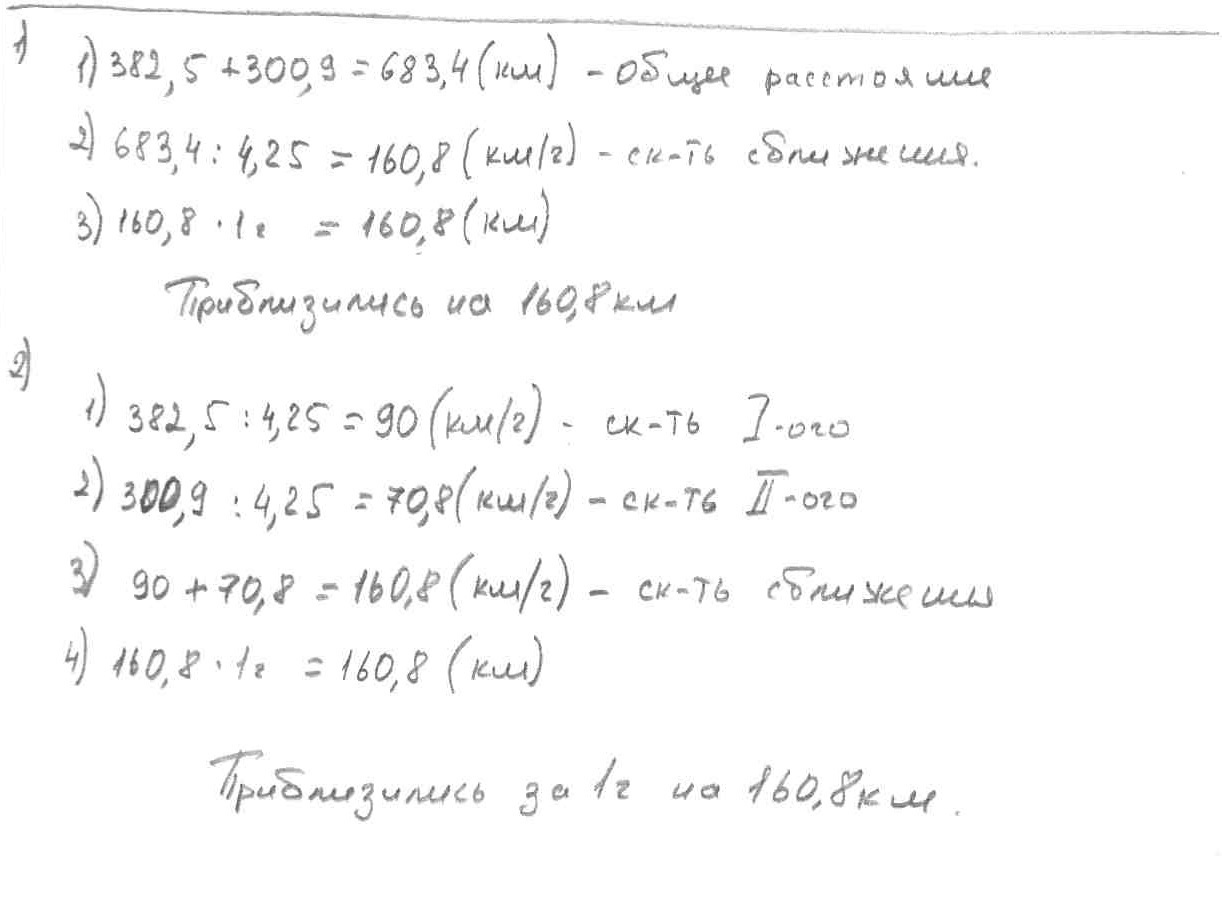 1)
1) 382,5 + 300,9 = 683,4 (км) - общее расстояние
2) 683,4 : 4,25 = 160,8 (км/г) - ск-ть сближения.
3) 160,8 · 1г = 160,8 (км)
Приблизились на 160,8 км
2)
1) 382,5 : 4,25 = 90 (км/г) - ск-ть I-ого
2) 300,9 : 4,25 = 70,8 (км/г) - ск-ть II-ого
3) 90 + 70,8 = 160,8 (км/г) - ск-ть сближения
4) 160,8 · 1г = 160,8 (км)
Приблизились за 1г на 160,8 км.